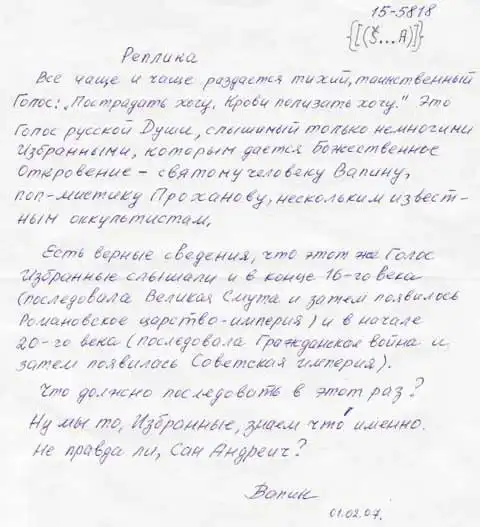 15-5818
{[(Š...А)]}
Реплика
Все чаще и чаще раздается тихий, таинственный
Голос: „Пострадать хочу. Крови полизать хочу." Это
Голос русской Души, слышимый только немногими
Избранными, которым дается Божественное
Откровение – святому человеку Вапину,
поп-мистику Проханову, нескольким извест-
ным оккультистам.
Есть верные сведения, что этот же Голос
Избранные слышали и в конце 16-го века
(последовала Великая Смута и затем появилось
Романовское царство-империя) и в начале
20-го века (последовала Гражданская война и
затем появилась Советская империя).
Что должно последовать в этот раз?
Ну мы то, Избранные, знаем что именно.
Не правда ли, Сан Андреич?
Вапик
01.02.07.